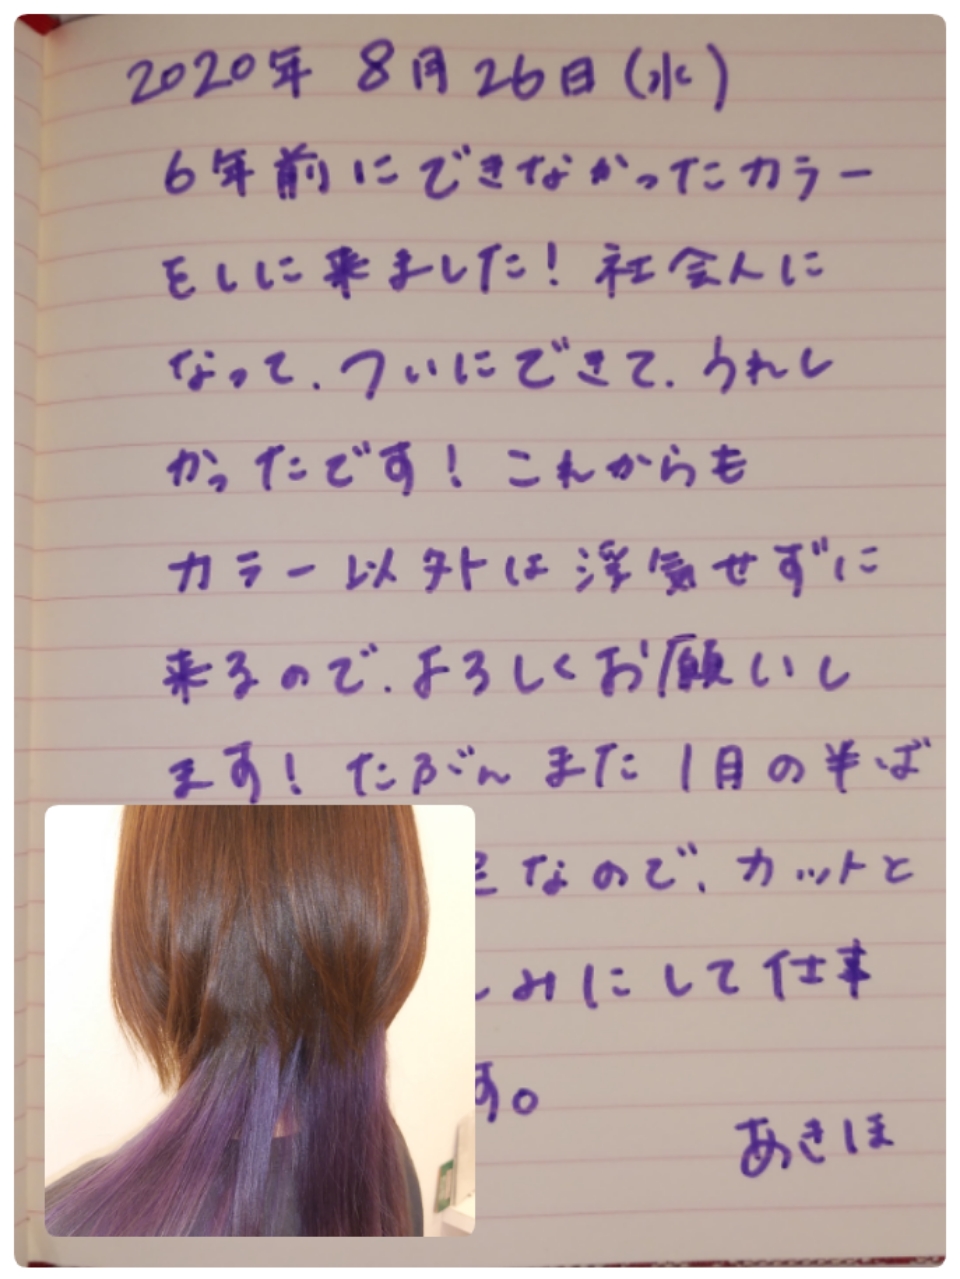 2020年 8月 26日(水)
6年前にできなかったカラー
をしに来ました！社会人に
なって、ついにできて、うれし
かったです！これからも
カラー以外は浮気せずに
来るので、よろしくお願いし
ます！たぶんまた1月の半ば
なので、カットと
みにして仕事
す。
あきほ